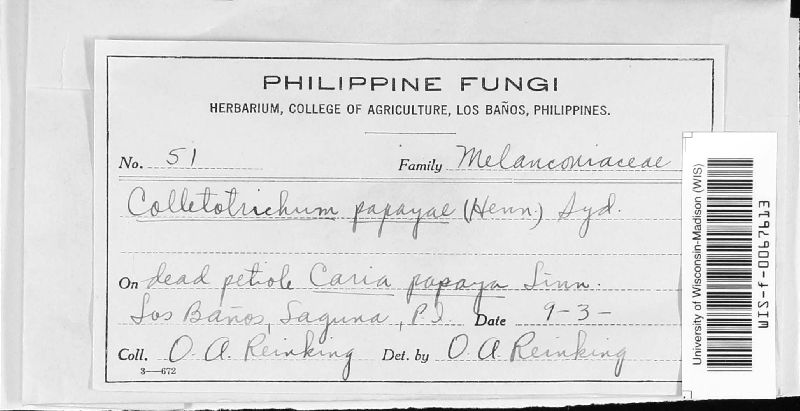 PHILIPPINE FUNGI
HERBARIUM, COLLEGE OF AGRICULTURE, LOS BAÑOS, PHILIPPINES.
No. 51 Family Melanconiaceae
Colletotrichum papayae (Henn.) Syd.
On dead petiole Caria papaya Linn.
Los Baños, Laguna, P.I. Date 9-3-
Coll. O. A. Reinking Det. by O. A. Reinking
3—672
University of Wisconsin-Madison (WIS)
WIS-f-0067613